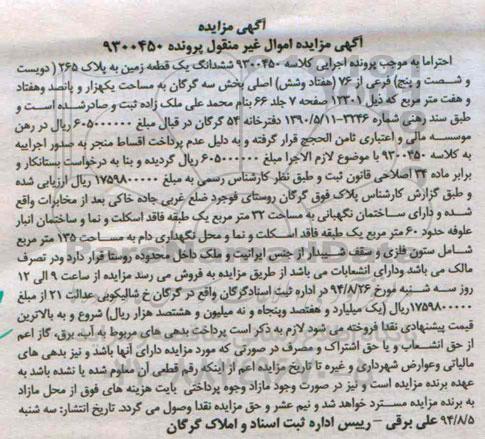 آگهی مزایده
آگهی مزایده اموال غیر منقول پرونده ۹۳۰۰۴۵۰
احتراما به موجب پرونده اجرایی کلاسه ۹۳۰۰۴۵۰ ششدانگ یک قطعه زمین به پلاک ۲۶۵ ( دویست
و شصت و پنج) فرعی از ۷۶ (هفتاد وشش) اصلی بخش سه گرگان به مساحت یکهزار و پانصد وهفتاد
و هفت متر مربع که ذیل ۱۲۳۰۱ صفحه ۷ جلد ۶۶ بنام محمد علی ملک زاده ثبت و صادرشده است و
طبق سند رهنی شماره ۳۲۴۶-۱۳۹۰/۵/۱۱ دفترخانه ۵۴ گرگان در قبال مبلغ ۶۰۵۰۰۰۰۰۰ ریال در رهن
موسسه مالی و اعتباری ثامن الحجج قرار گرفته و به دلیل عدم پرداخت اقساط منجر به صدور اجراییه
به کلاسه ۹۳۰۰۴۵۰ با موضوع لازم الاجرا مبلغ ۶۰۵۰۰۰۰۰۰ ریال گردیده و بنا به درخواست بستانکار و
برابر ماده ۳۴ اصلاحی قانون ثبت و طبق نظر کارشناس رسمی به مبلغ ۱۷۵۹۸۰۰۰۰۰ ریال ارزیابی شده
و طبق گزارش کارشناس پلاک فوق گرگان روستای فوجرد ضلع غربی جاده خاکی بعد از مخابرات واقع
شده و دارای ساختمان نگهبانی به مساحت ۳۲ متر مربع یک طبقه فاقد اسکلت و نما و ساختمان انبار
علوفه حدود ۶۰ متر مربع یک طبقه فاقد اسکلت و نما و محل نگهداری دام به مساحت ۱۲۵ متر مربع
شامل ستون فلزی و سقف شیبدار از جنس ایرانیت و ملک داخل محدوده روستا قرار دارد ودر تصرف
مالک می باشد ودارای انشعابات می باشد از طریق مزایده به فروش می رسد مزایده از ساعت ۹ الی ۱۲
روز سه شنبه مورخ ۹۴/۸/۲۶ در اداره ثبت اسنادگرگان واقع در گرگان خ شالیکوبی عدالت ۲۱ از مبلغ
۱۷۵۹۸۰۰۰۰۰ریال (یک میلیارد و هفتصد وپنجاه و نه میلیون و هشتصد هزار ریال) شروع و به بالاترین
قیمت پیشنهادی نقدا فروخته می شود لازم به ذکر است پرداخت بدهی های مربوط به آب، برق، گاز اعم
از حق انشعاب و یا حق اشتراک و مصرف در صورتی که مورد مزایده دارای آنها باشد و نیز بدهی های
مالیاتی وعوارض شهرداری و غیره تا تاریخ مزایده اعم از اینکه رقم قطعی آن معلوم شده یا نشده باشد به
عهده برنده مزایده است و نیز در صورت وجود مازاد وجوه پرداختی بابت هزینه های فوق از محل مازاد
به برنده مزایده مسترد خواهد شد و نیم عشر و حق مزایده نقدا وصول می گردد. تاریخ انتشار: سه شنبه
۹۴/۸/۵ علی برقی – رییس اداره ثبت اسناد و املاک گرگان